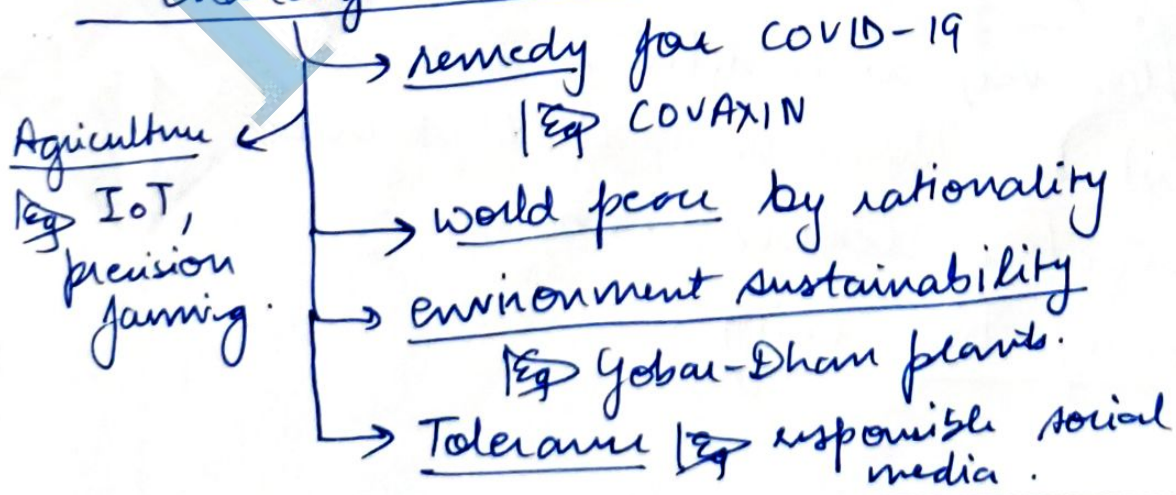 remedy for COVID-19
Eg COVAXIN
Agriculture
Eg IoT,
precision
farming.
world peace by rationality
environment sustainability
Eg Gobar-Dhan plants.
Tolerance Eg responsible social
media.